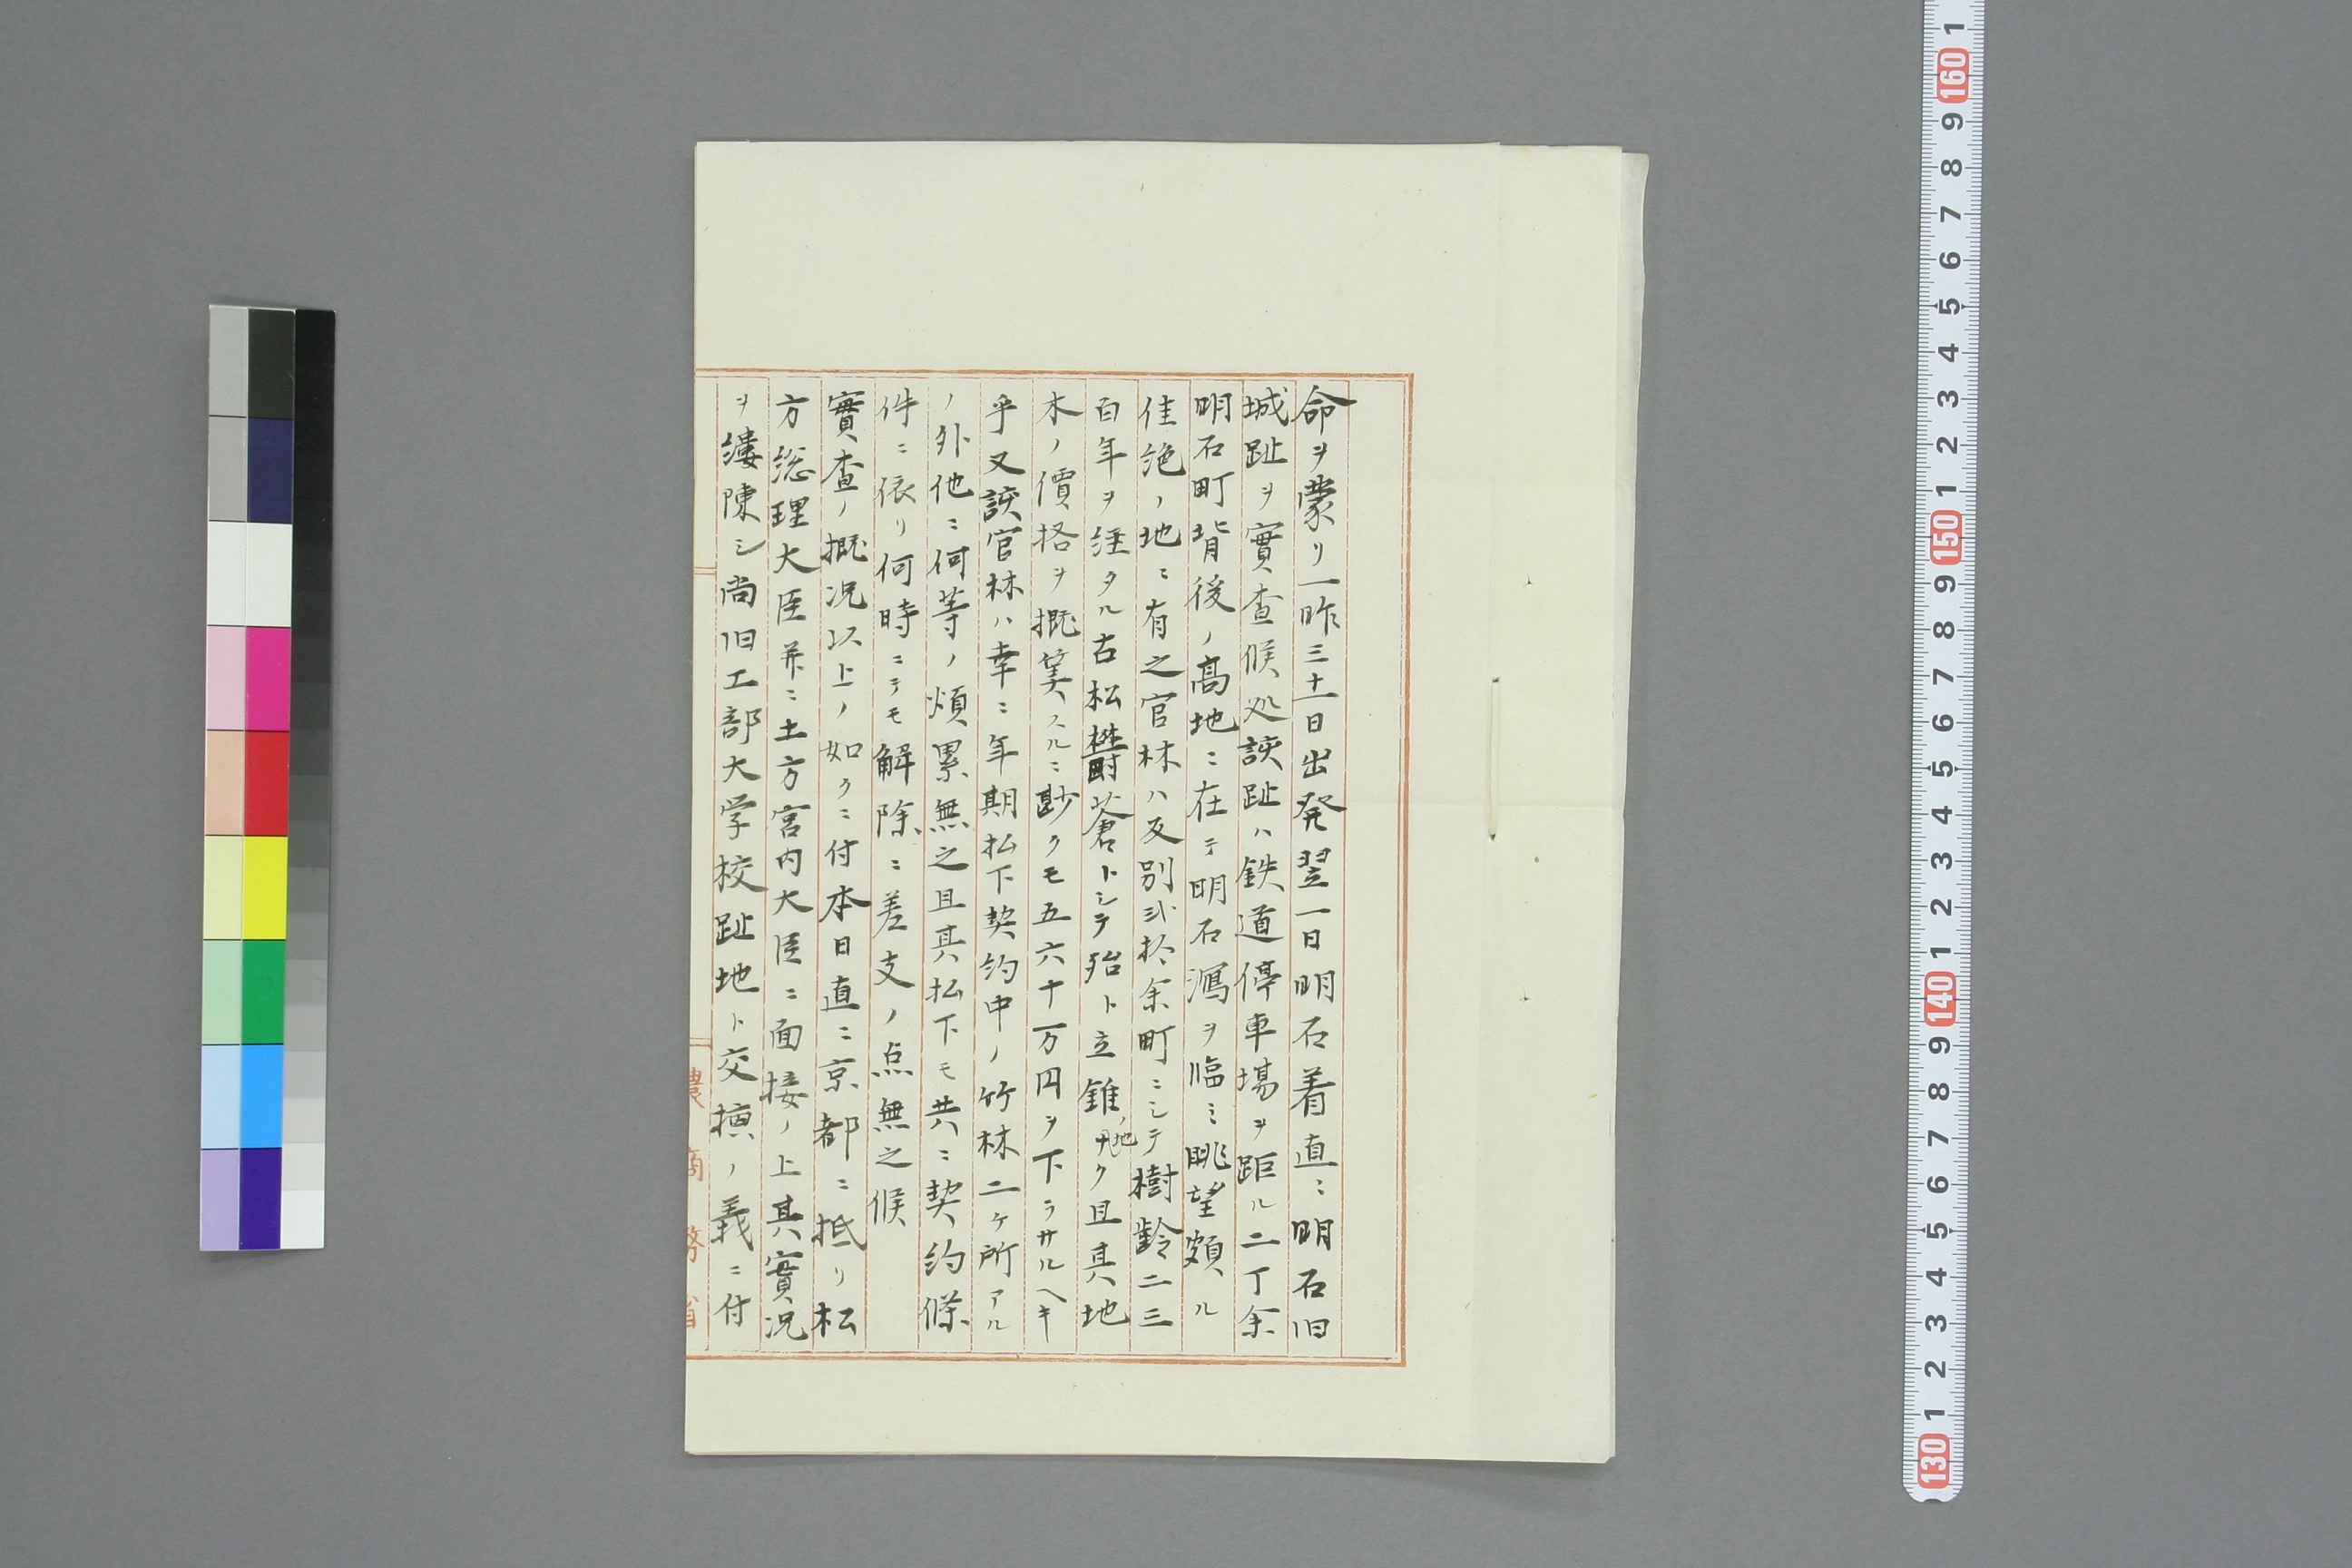 命ヲ蒙リ一昨三十一日出発翌一日明石着直ニ明石旧
城趾ヲ實査候処該趾ハ鉄道停車場ヲ距ル二丁余
明石町背後ノ高地ニ在テ明石瀉ヲ臨ミ眺望頗ル
佳絶ノ地ニ有之官林ハ反別弐拾余町ニシテ樹齢二三
百年ヲ経タル古松欝蒼トシテ殆ト立錐ノ地ナク且其地
木ノ價格ヲ概算スルニ尠クモ五六十万円ヲ下ラサルヘキ
乎又該官林ハ幸ニ年期払下契約中ノ竹林二ケ所アル
ノ外他ニ何等ノ煩累無之且其払下モ共ニ契約條
件ニ依リ何時ニテモ解除ニ差支ノ点無之候
實査ノ概况以上ノ如クニ付本日直ニ京都ニ抵リ松
方総理大臣并ニ土方宮内大臣ニ面接ノ上其實况
ヲ縷陳シ尚旧工部大学校趾地ト交換ノ義ニ付
農商務省
130 1 2 3 4 5 6 7 8 9 140 1 2 3 4 5 6 7 8 9 150 1 2 3 4 5 6 7 8 9 160 1